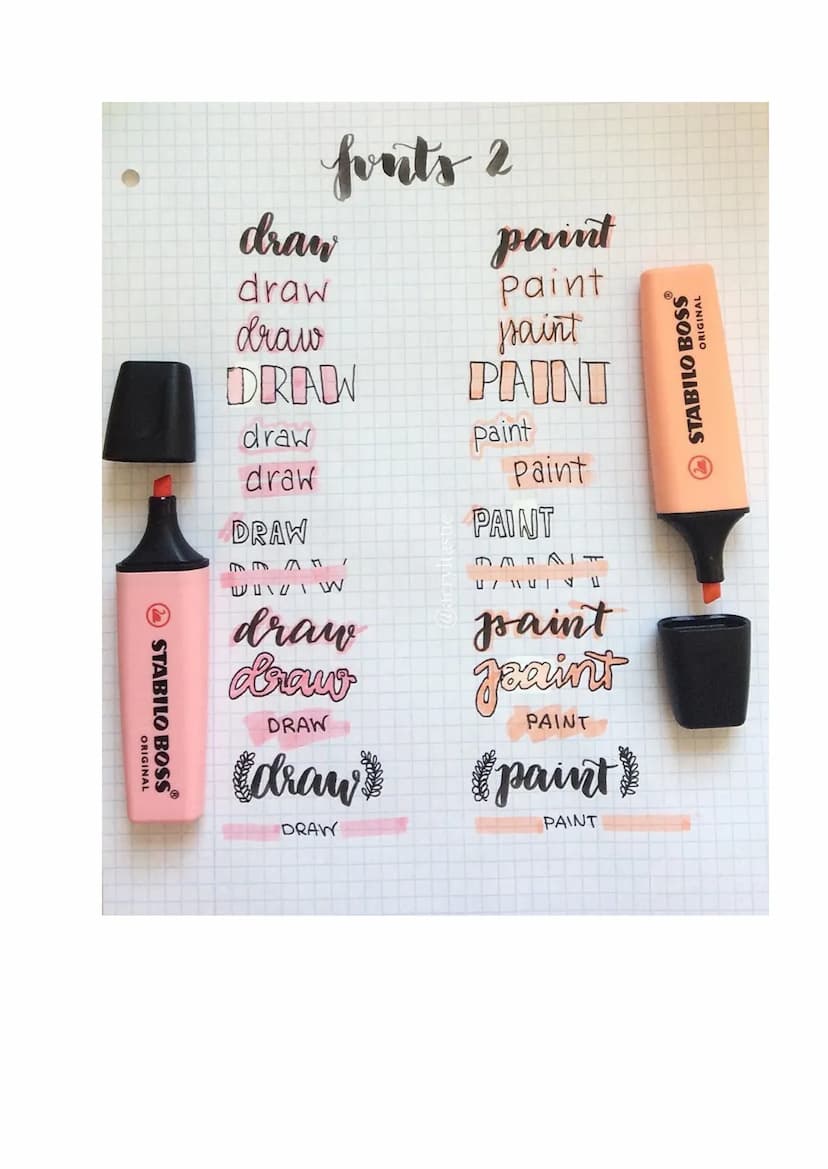 fonts 2
draw paint
draw paint
draw paint
DRAW PAINT
draw paint
draw paint
DRAW PAINT
DRAW PAINT
draw paint
draw paint
DRAW PAINT
draw paint
DRAW PAINT
STABILO BOSS®
ORIGINAL
STABILO BOSS®
ORIGINAL